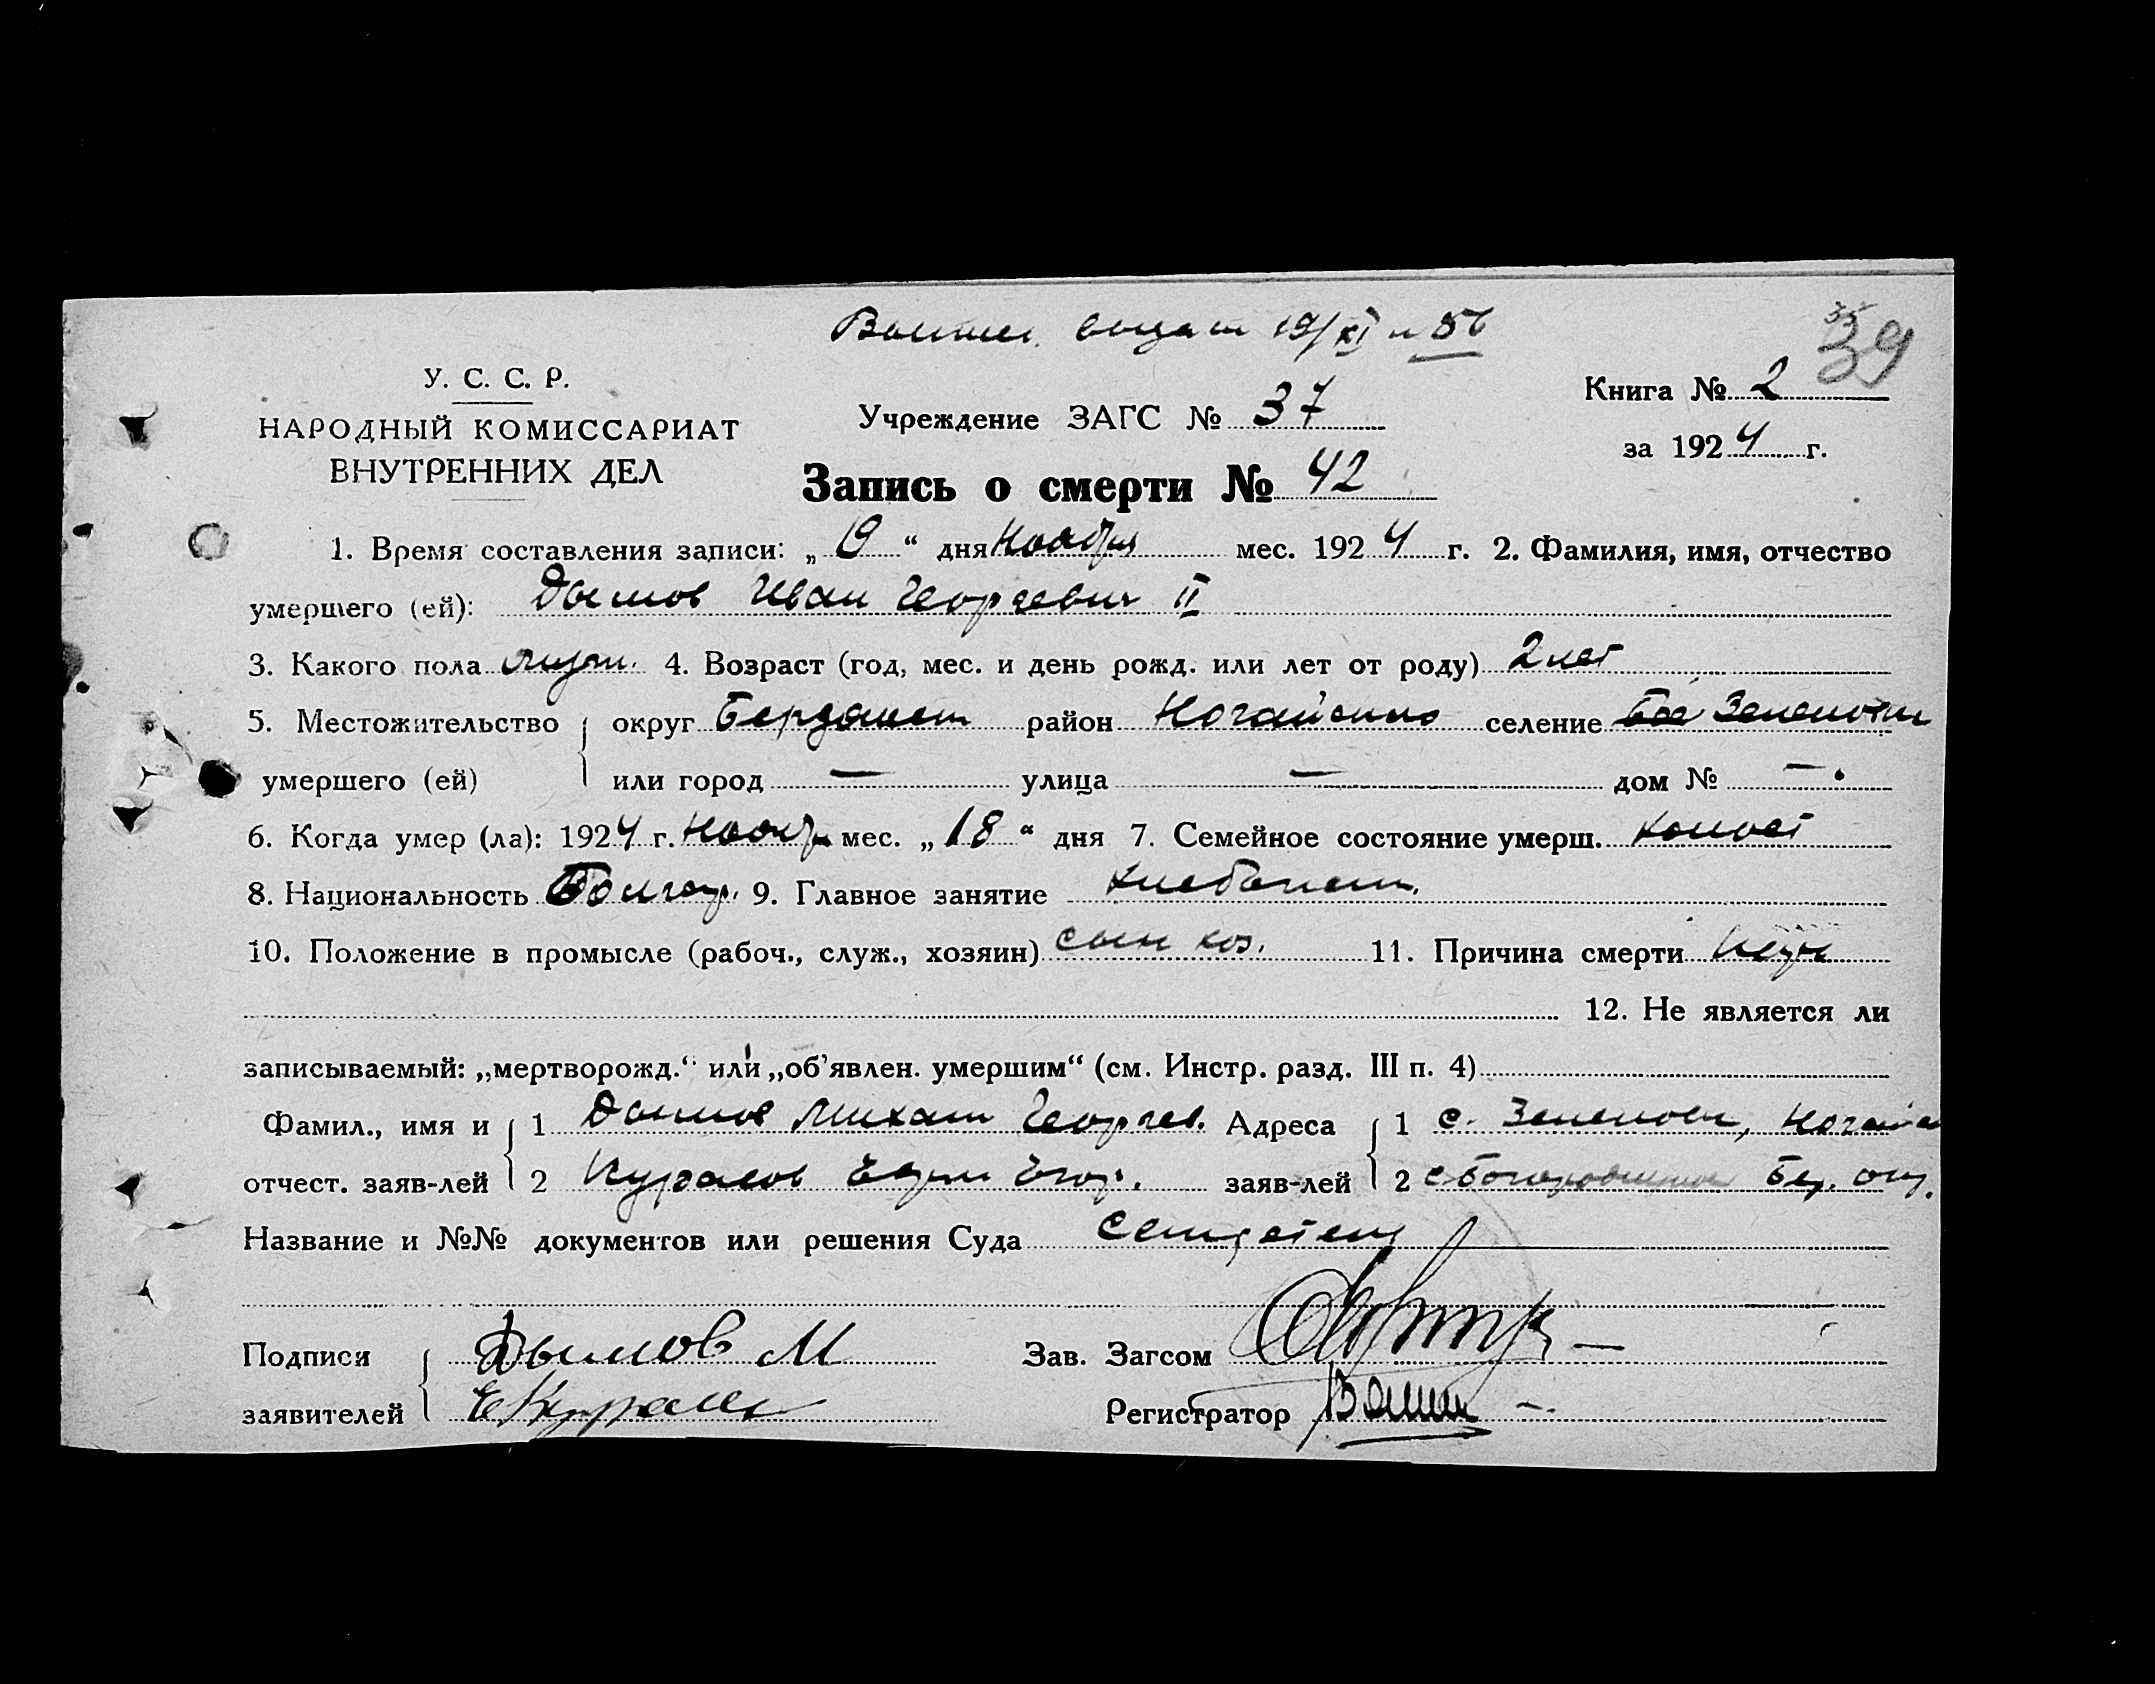 выдан 19/XI № 56
35
39
У. С. С. Р.
НАРОДНЫЙ КОМИССАРИАТ
ВНУТРЕННИХ ДЕЛ
Учреждение ЗАГС № 37
Книга № 2
за 1924 г.
Запись о смерти № 42
1. Время составления записи: „ 19 “ дня Ноября мес. 1924 г. 2. Фамилия, имя, отчество
умершего (ей): Дымов Иван Георгиевич II
3. Какого пола муж. 4. Возраст (год, мес. и день рожд. или лет от роду) 2 лет
5. Местожительство округ Бердянск район Ногайского селение Зеленовки
умершего (ей) или город — улица — дом № —
6. Когда умер (ла): 1924 г. Ноябр мес. „ 18 “ дня 7. Семейное состояние умерш. холост
8. Национальность Болгар. 9. Главное занятие хлебопаш.
10. Положение в промысле (рабоч., служ., хозяин) сын хоз. 11. Причина смерти
12. Не является ли
записываемый: „мертворожд.“ или „об'явлен. умершим“ (см. Инстр. разд. III п. 4)
Фамил., имя и 1 Дымов Михаил Георгиев. Адреса 1 с. Зеленовки, Ногайск
отчест. заяв-лей 2 Егор. заяв-лей 2 Бер. окр.
Название и №№ документов или решения Суда
Подписи Дымов М Зав. Загсом
заявителей Регистратор